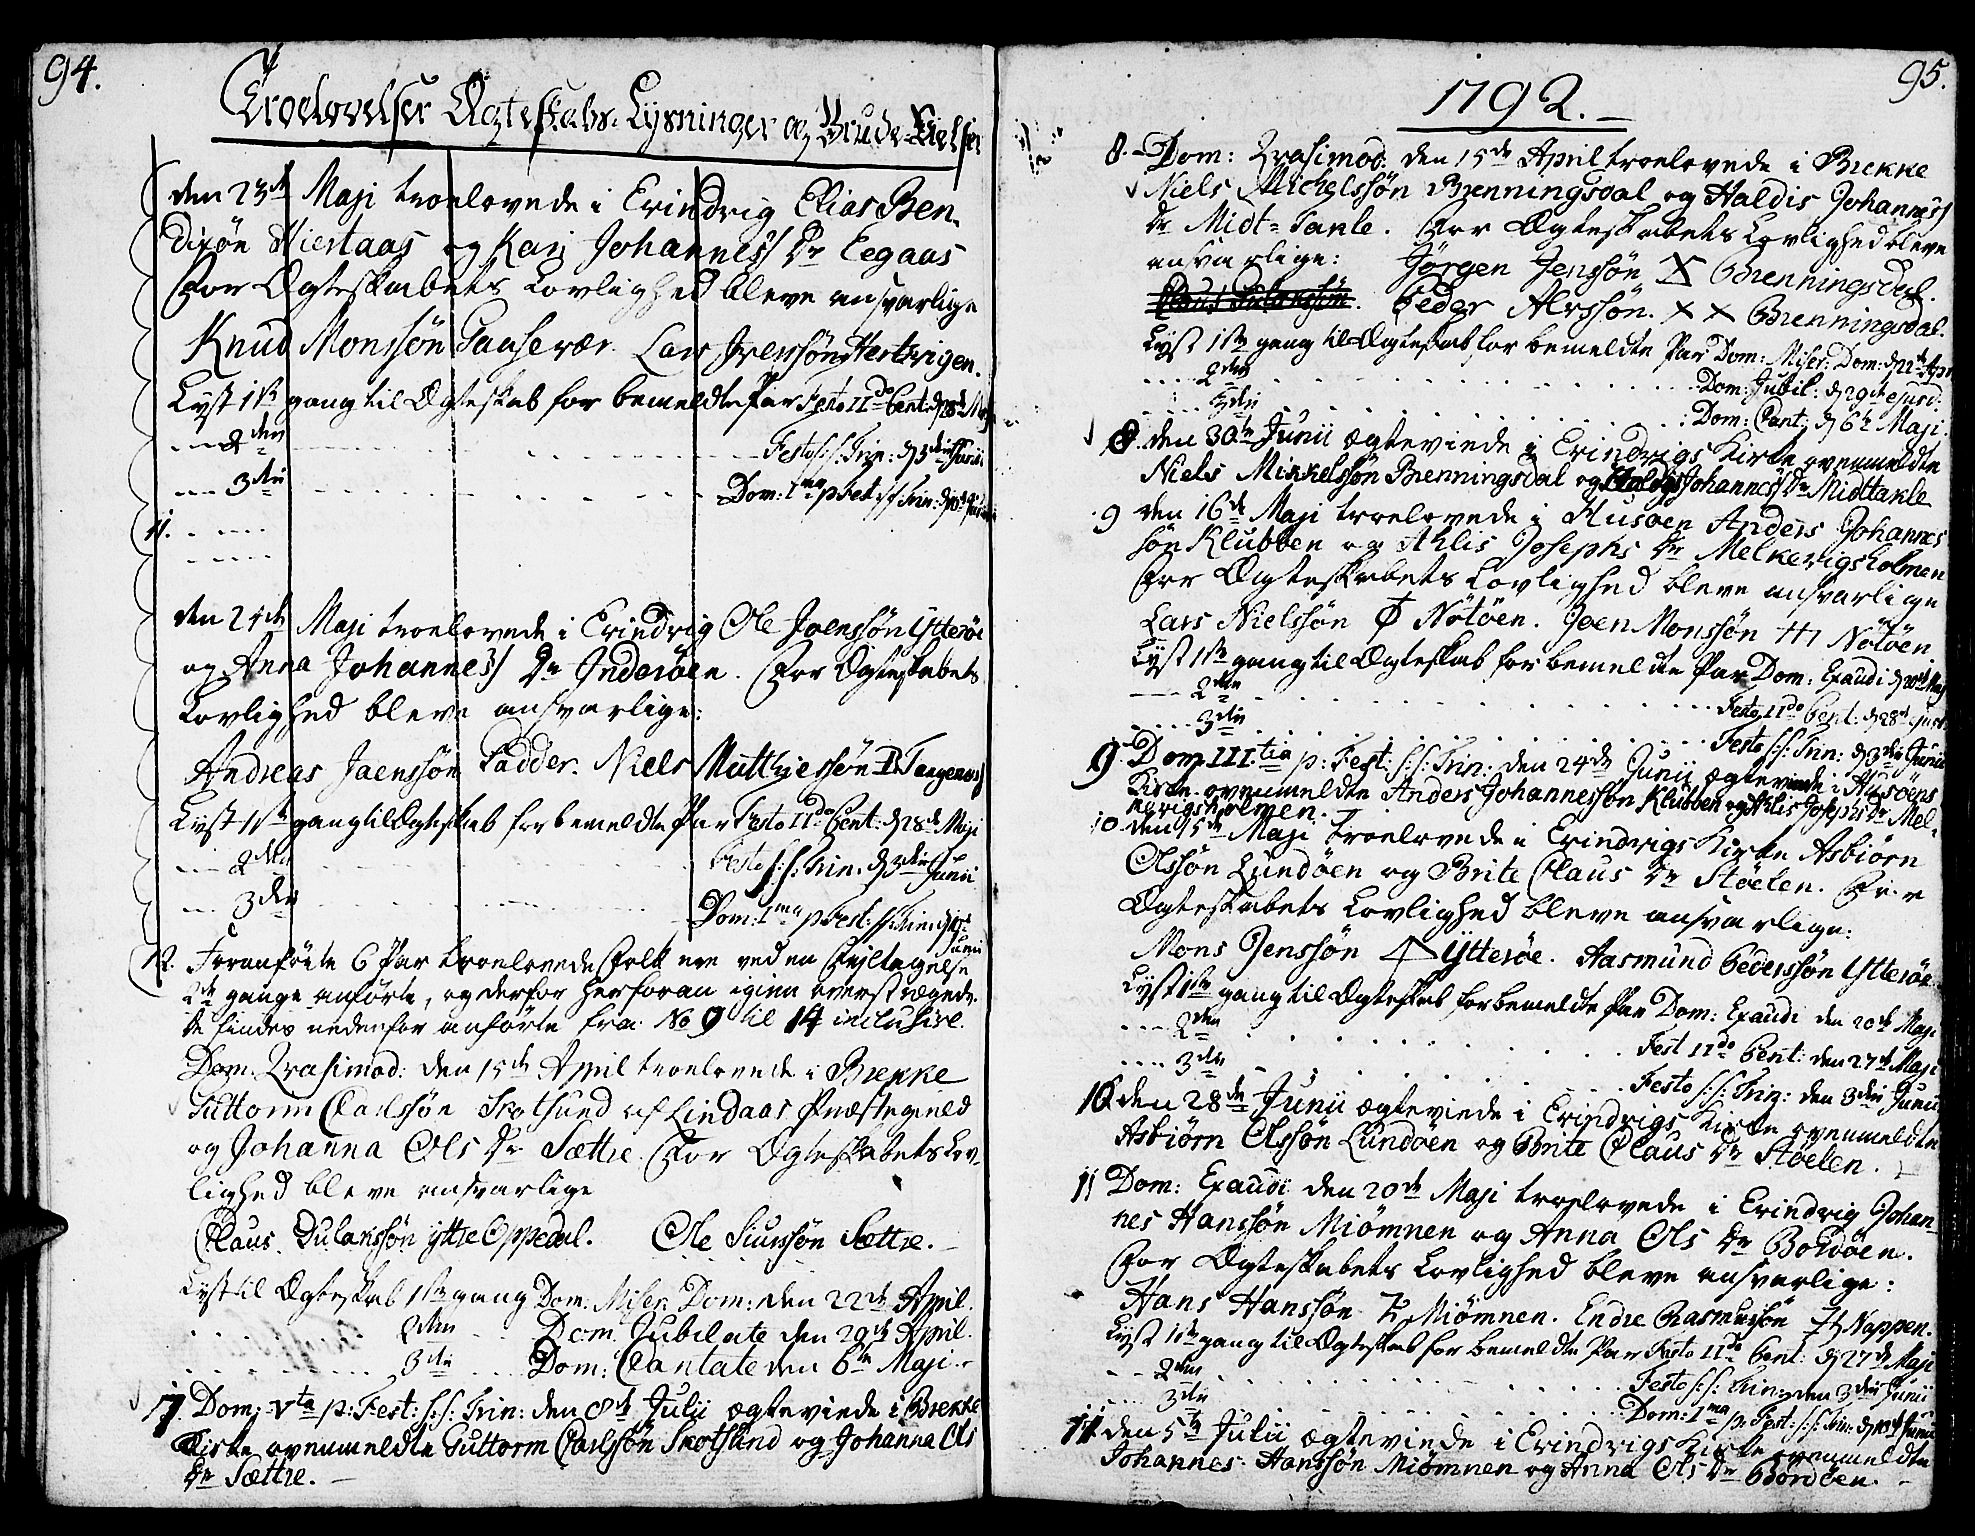 94.
Troelovelser Ægteskabs-Lysninger og Brude-Vielser
den 23de Maji troelovede i Evindvig Elias Ben-
dixøn Hiertaas og Kari Johannes Dr Eegaas
For Ægteskabets Lovlighed bleve ansvarlige
Knud Monssøn Gaasevær. Lars Iverssøn Hertvigen.
Lyst 1ste gang til Ægteskab for bemeldte Par Festo IIdo Pent: d 28de Maji
---- 2den Festo S: S: Trin: d 3die Junii
---- 3die Dom: 1ma p Fest: S: S: Trin: d 10de Junii
11.
den 24de Maji troelovede i Evindvig Ole Joenssøn Ytterøe
og Anna Johannes Dr Inderøen. For Ægteskabets
Lovlighed bleve ansvarlige:
Andreas Jaenssøn Padder. Niels Matthiessøn
Lyst 1ste gang til Ægteskab for bemeldte Par Festo IIdo Pent: d 28de Maji
---- 2den Festo S: S: Trin. d 3die Junii
---- 3die Dom: 1ma p Fest: S: S: Trin: d 10de Junii
12. Foranførte 6 Par troelovede Folk ere ved en Fejltagelse
2de gange anførte, og derfor herforan igien
findes nedenfor anførte fra No 9 til 14 inclusive.
Dom. Qvasimod: den 15de April troelovede i Brekke
Guttorm Carlssøn Skotsund af Lindaas Præstegield
og Johanna Ols Dr Sættre. For Ægteskabets Lov-
lighed bleve ansvarlige
Claus Dulanssøn ÿttre Oppedal. Ole Siurssøn Sættre. -
Lyst til Ægteskab 1ste gang Dom: Miser. Dom: den 22de April.
2den Dom. Jubilate den 29de April.
3die Dom: Cantate den 6te Maji.
7. Dom: Vta p: Fest: S: S: Trin: den 8de Julii ægteviede i Brekke
Kirke ovenmeldte Guttorm Carlssøn Skotsund og Johanna Ols
Dr Sættre. -
95.
1792. -
8. - Dom: Qvasimod: den 15de April troelovede i Brekke
Niels Michelssøn Brenningsdal og Haldis Johannes
Dr Midt-Takle. For Ægteskabets Lovlighed bleve
ansvarlige: Jörgen Jenssøn X Brenningsdal.
Peder Alvssøn. X X Brenningsdal.
Lyst 1ste gang til Ægteskab for bemeldte Par Dom: Miser: Dom: d 22de Apr
.....2den Dom: Jubil: d 29de ejusd.
.....3die Dom: Cant: d 6te Maji.
8. den 30te Junii ægteviede i Evindvigs Kirke ovenmeldte
Niels Mikkelssøn Brenningsdal og Haldis Johannes Dr Midttakle
9 den 16de Maji troelovede i Husøen Anders Johannes
søn Klubben og Ahlis Josephs Dr Melkevigsholmen
For Ægteskabets Lovlighed bleve ansvarlige
Lars Nielssøn Nötöen. Joen Monssøn Nötöen.
Lyst 1ste gang til Ægteskab for bemeldte Par Dom: Exaudi d 20de Maj
---- 2den Festo IIdo Pent: d 28de ejusd
---- 3die Festo S: S: Trin: d 3die Junii
9 Dom. IIItia p: Fest: S: S: Trin: den 24de Junii ægteviede i Husøens
Kirke ovenmeldte Anders Johannessøn Klubben og Ahlis Josephs Dr Mel-
kevigsholmen.
10 den 15de Maji troelovede i Evindvigs Kirke Asbiørn
Olssøn Lundöen og Brite Claus Dr Stöelen. For
Ægteskabets Lovlighed bleve ansvarlige:
Mons Jenssøn Ytteröe. Aasmund Pederssøn Ytteröe
Lyst 1ste gang til Ægteskab for bemeldte Par Dom: Exaudi den 20de Maji
.... 2den Fest IIdo Pent: den 27de Maji
.... 3die Festo S: S: Trin: den 3die Junii
10. den 28de Junii ægteviede i Evindvigs Kirke ovenmeldte
Asbiørn Olssøn Lundöen og Brite Claus Dr Stöelen.
11 Dom: Exaudi den 20de Maji troelovede i Evindvig Johan-
nes Hanssøn Miömnen og Anna Ols Dr Bordöen.
For Ægteskabets Lovlighed bleve ansvarlige:
Hans Hanssøn Miömnen. Endre Rasmussøn Nappen.
Lyst 1ste gang til Ægteskab for bemeldte Par Festo IIdo Pent: d 27de Maji
2den Festo S: S: Trin: den 3die Junii
3die Dom: 1ma p: Fest: S: S: Trin: d 10de Junii
11 den 5te Julii ægteviede i Evindvigs Kirke ovenmeldte
Johannes Hanssøn Miömnen og Anna Ols Dr Bordöen. -